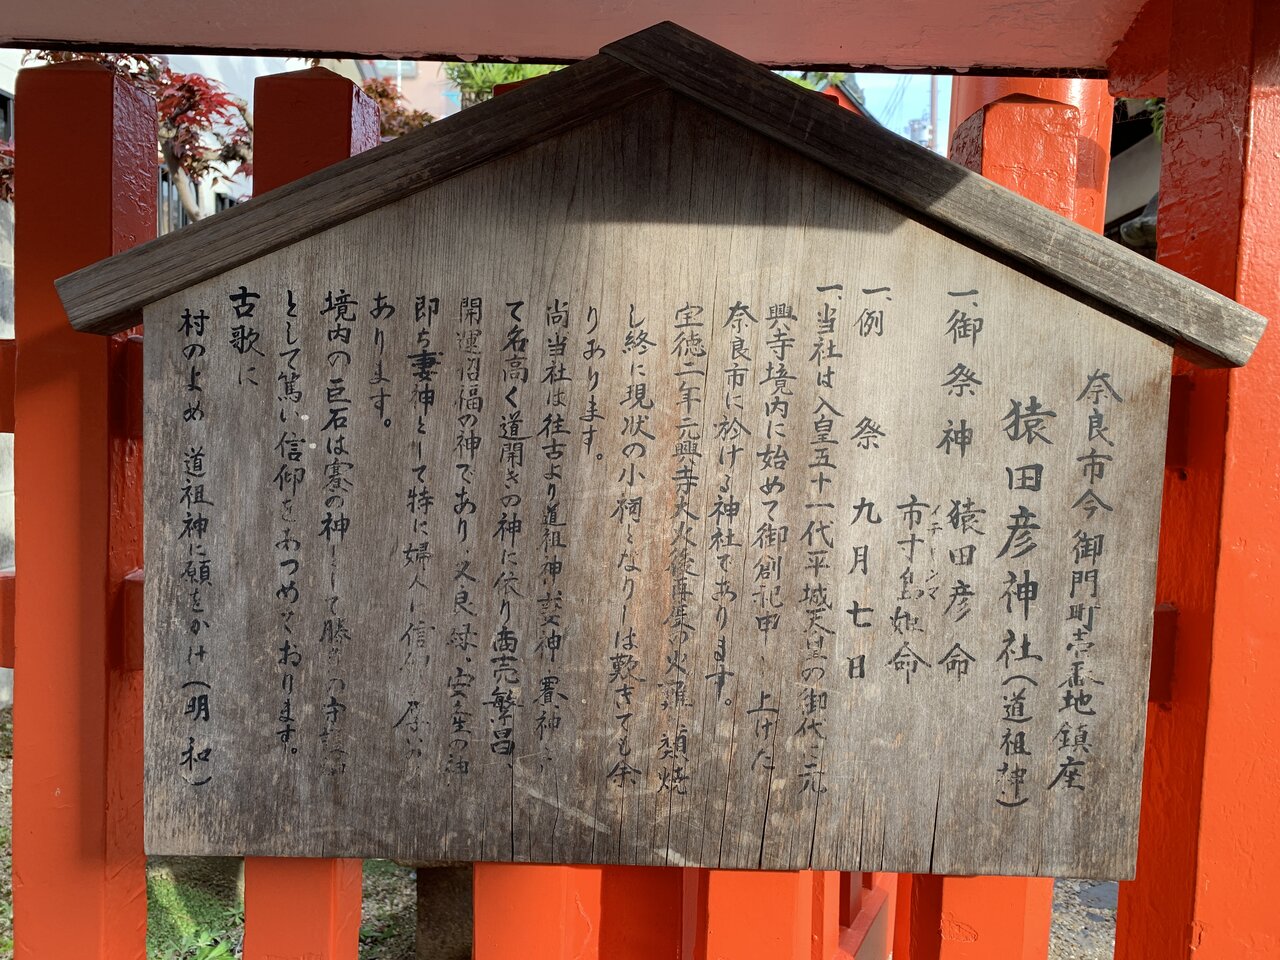 奈良市今御門町壱番地鎮座
猿田彦神社(道祖神)
一、御祭神 猿田彦命
市寸島姫命
イチキシマ
一、例 祭 九月七日
一、当社は人皇五十一代平城天皇の御代に元
興寺境内に始めて御創祀申し上げた
奈良市に於ける神社であります。
宝徳三年元興寺大火後再度の火災に類焼
し終に現状の小祠となりしは歎きても余
りあります。
尚当社は往古より道祖神 神 賽神
て名高く道開きの神に依り商売繁昌、
開運招福の神であり、又良縁、安産の神
即ち妻神として特に婦人に信仰
あります。
境内の巨石は賽の神として
として篤い信仰をあつめております。
古歌に
村のよめ 道祖神に願をかけ(明和)